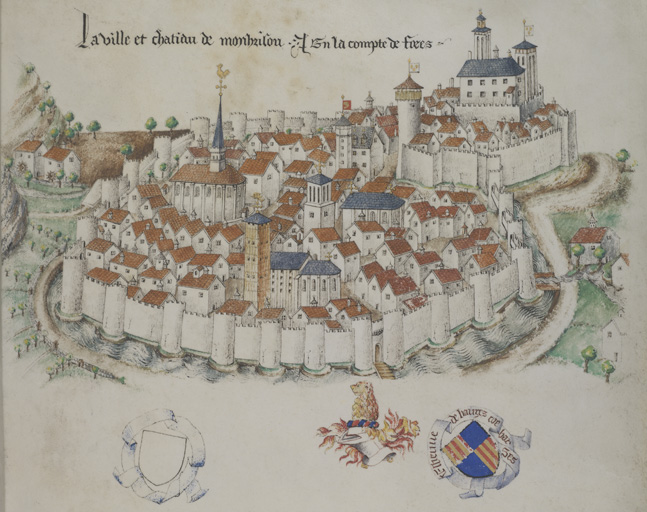 La ville et chatiau de monbrison En la compte de fores